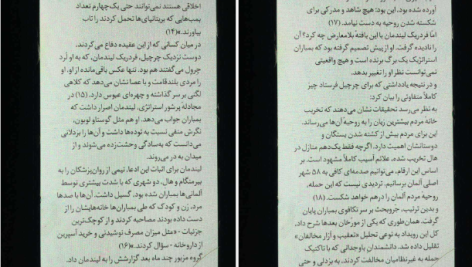 اخلاقی هستند نمی‌توانند حتی یک‌چهارم تعداد
بمب‌هایی که بریتانیایی‌ها تحمل کردند را تاب
بیاورند.»(۱۴)
در میان کسانی که از این عقیده دفاع می‌کردند،
دوست نزدیک چرچیل، فردریک لیندمان، که به او لرد
چرول می‌گفتند هم بود. تنها عکس باقی‌مانده از او، او
را مردی بلندقامت و با عصا نشان می‌دهد که کلاهی
لگنی بر سر گذاشته و چهره‌ای عبوس دارد. (۱۵) در
مجادله پرشور استراتژی، لیندمان اصرار داشت که
بمباران جواب می‌دهد. او هم مثل گوستاو لوبون،
نگرش منفی نسبت به توده‌ها داشت و آن‌ها را بزدلانی
می‌دانست که به‌سادگی وحشت‌زده می‌شوند و از
میدان به در می‌روند.
لیندمان برای اثبات این ادعا، تیمی از روان‌پزشکان را به
بیرمنگام و هال، دو شهری که با شدت بیشتری توسط
آلمانی‌ها بمباران شده بود، گسیل داشت. آن‌ها با صدها
مرد، زن و کودک که طی بمباران‌ها خانه‌هایشان را از
دست داده بودند مصاحبه کردند و از کوچک‌ترین
جزئیات - «مثل میزان مصرف نوشیدنی و خرید آسپرین
از داروخانه - سؤال کردند.»(۱۶)
گروه مزبور چند ماه بعد گزارشش را به لیندمان داد.
آورده شده بود، این بود: هیچ شاهد و مدرکی برای
شکسته شدن روحیه به دست نیامد. (۱۷)
اما فردریک لیندمان با این یافته بلامعارض چه کرد؟ آن
را نادیده گرفت. او از پیش تصمیم گرفته بود که بمباران
استراتژیک یک برگ برنده است و هیچ واقعیتی
نمی‌توانست نظر او را تغییر بدهد.
و در نتیجه یادداشتی که برای چرچیل فرستاد چیز
کاملاً متفاوتی را بیان کرد:
به نظر می‌رسد تحقیقات نشان می‌دهند که تخریب
خانه مردم بیشترین زیان را به روحیهٔ آن‌ها می‌رساند.
این برای مردم بیش از کشته شدن بستگان و
دوستانشان اهمیت دارد. اگرچه فقط یک‌دهم منازل در
هال تخریب شده، علائم آسیب کاملاً مشهود است. بر
اساس این ارقام، می‌توانیم صدمه‌ای کافی به ۵۸ شهر
اصلی آلمان برسانیم. تردیدی نیست که این حمله،
روحیه مردم آلمان را درهم خواهد شکست. (۱۸)
و بدین ترتیب، جروبحث بر سر تکاپوی بمباران پایان
گرفت. همان‌طوری که یکی از مورّخان بعدها شرح داد،
کل این رویداد به نوعی تحلیل «تعقیب و آزار مخالفان»
تقلیل داده شد. دانشمندان باوجدانی که با تاکتیک
حمله به غیرنظامیان مخالفت کردند، به بزدلی و حتی